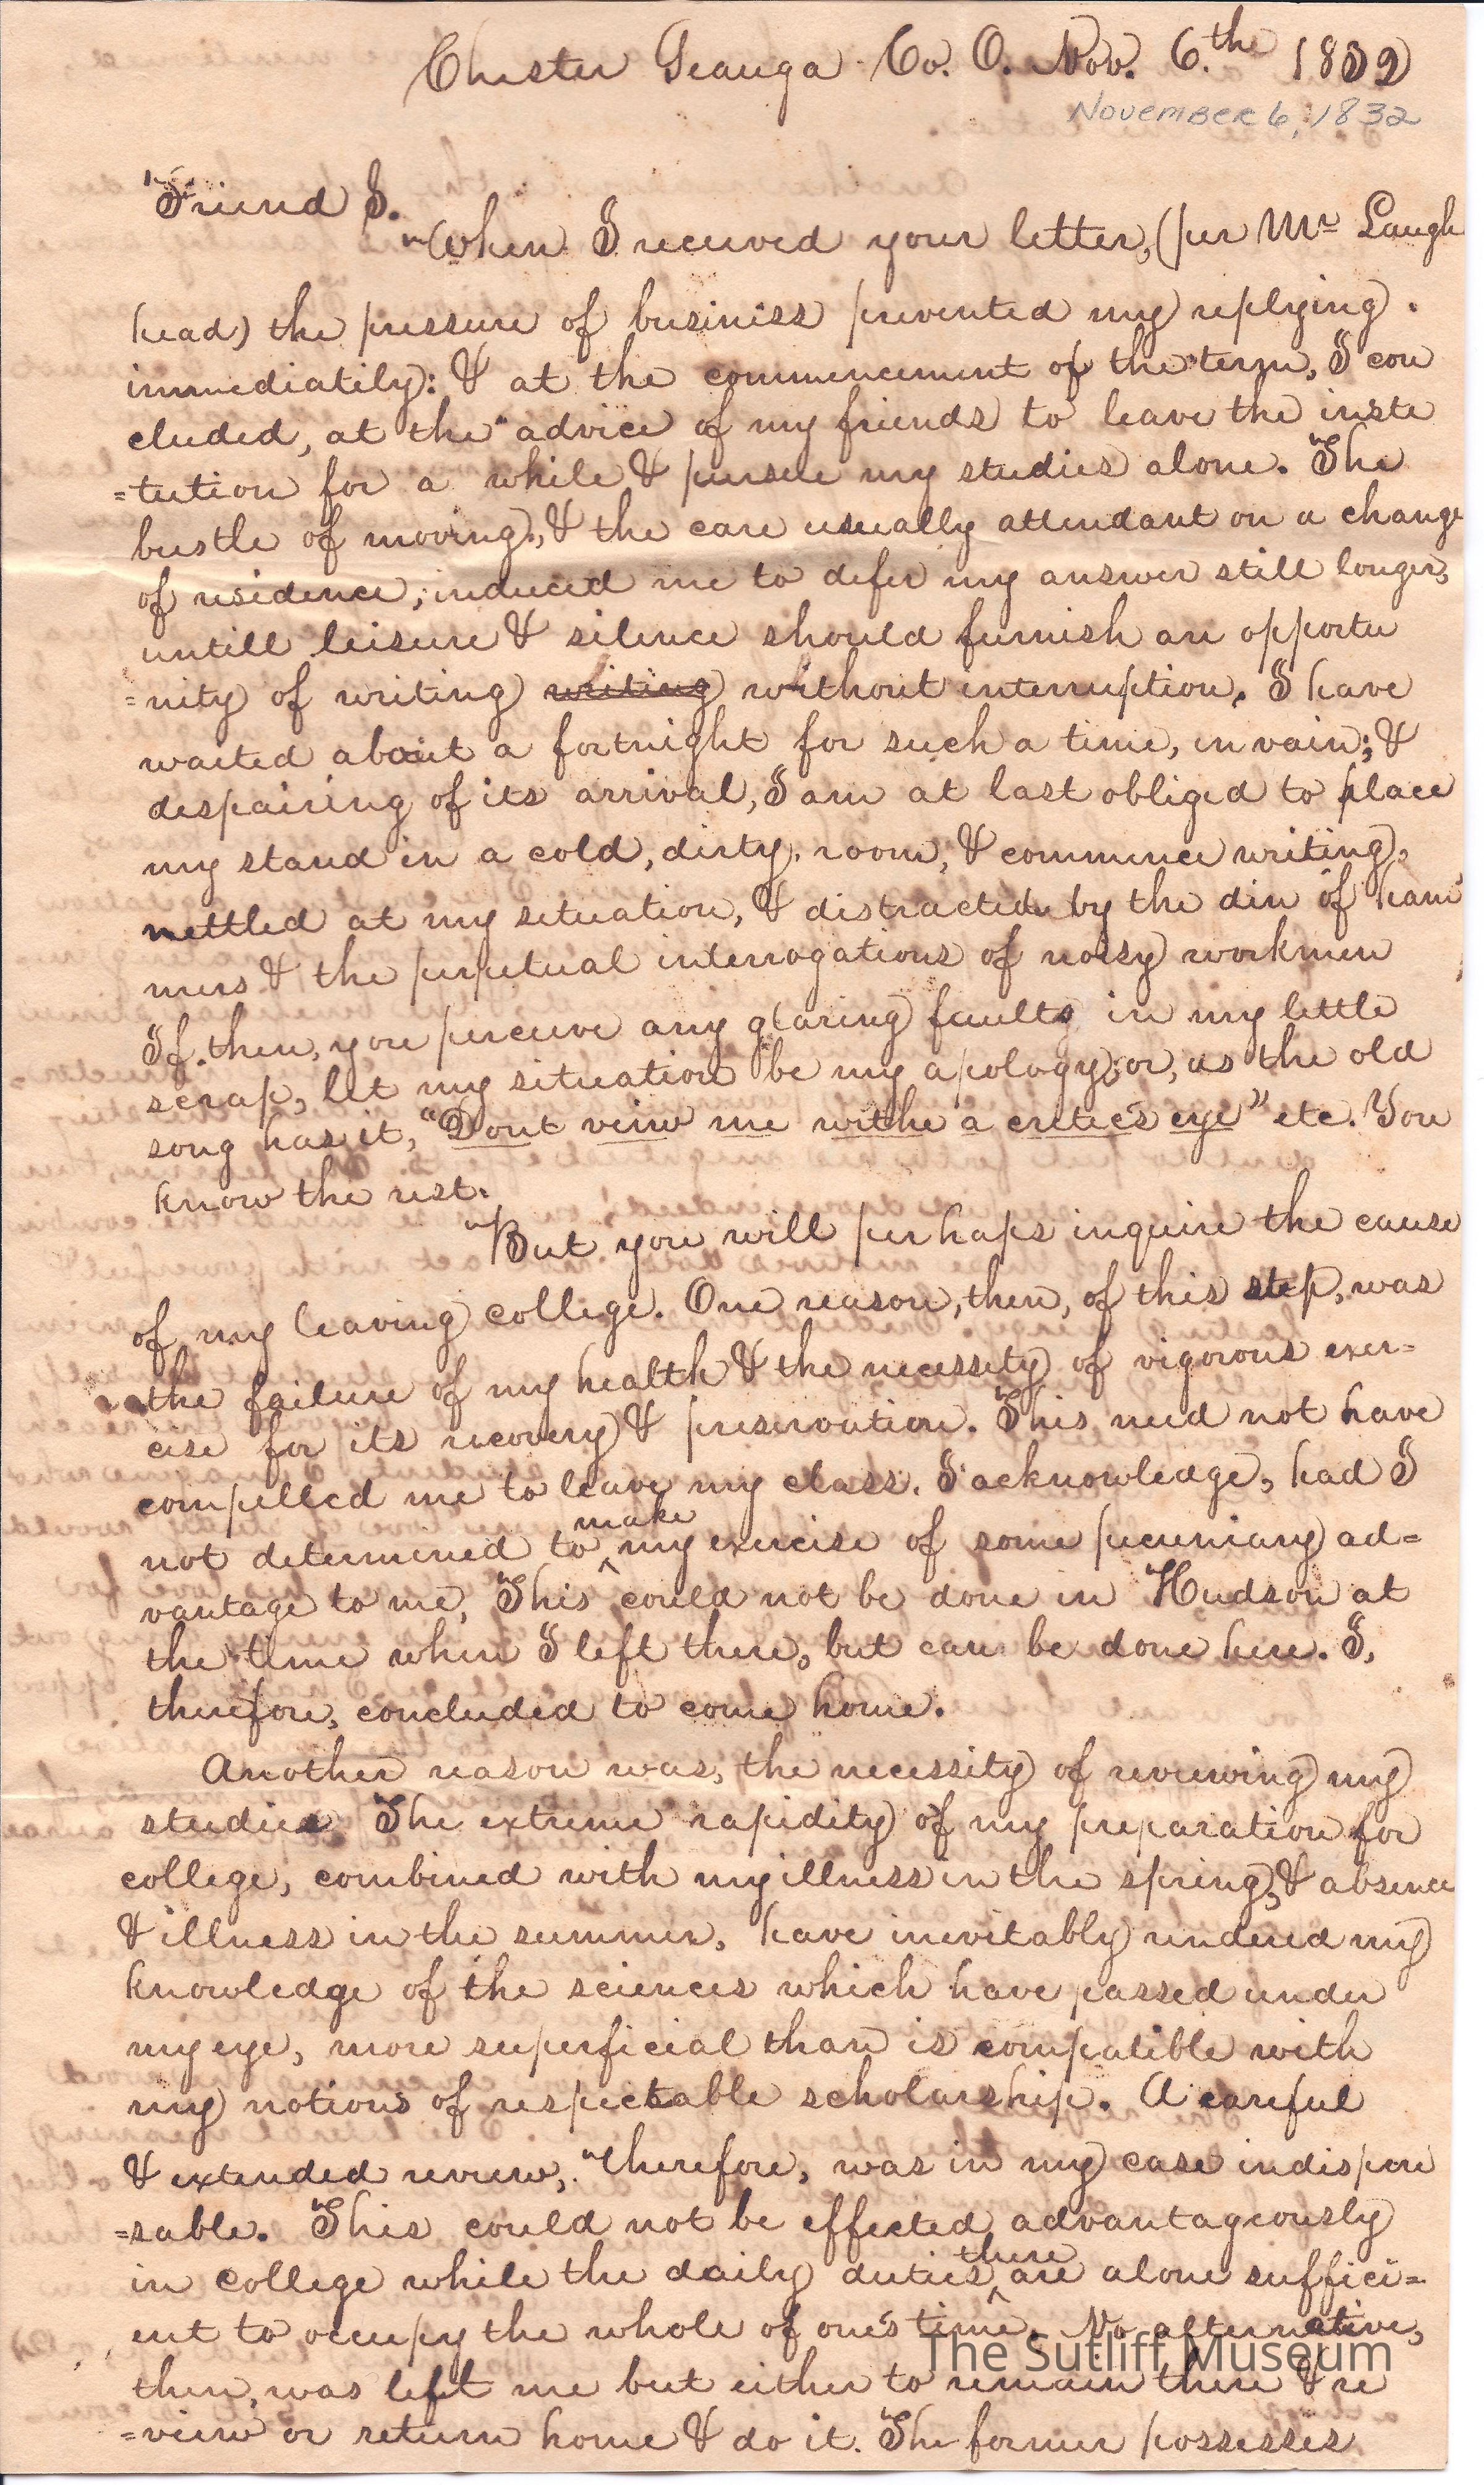 Chester Geauga Co. O. Nov. 6.th 1832
November 6, 1832
Friend S.
When I received your letter, (per Mr Laugh
head) the pressure of business prevented my replying.
immediatily: & at the commencement of the term, I con
cluded, at the advice of my friends to leave the insti
=tution for a while & pursue my studies alone. The
bustle of moving, & the care usually attendant on a change
of residence, induced me to defer my answer still longer,
untill leisure & silence should furnish an opportu
=nity of writing writing without interruption. I have
waited about a fortnight for such a time, in vain; &
despairing of its arrival, I am at last obliged to place
my stand in a cold, dirty, room, & commence writing,
nettled at my situation, & distracted by the din of ham
mers & the perpetual interrogations of noisy workmen
If then, you perceive any glaring faults in my little
scrap, let my situation be my apology; or, as the old
song has it, "Dont veiw me withe a critic's eye" etc. You
know the rest.
But you will perhaps inquire the cause
of my leaving college. One reason, then, of this step, was
the failure of my health & the necessity of vigorous exer=
cise for its recovery & preservation. This need not have
compelled me to leave my class. I acknowledge, had I
not determined to make my exercise of some pecuniary ad=
vantage to me, This could not be done in Hudson at
the time when I left there, but can be done here. I,
therefore, concluded to come home.
Another reason was, the necessity of reviewing my
studies. The extreme rapidity of my preparation for
college, combined with my illness in the spring, & absence
& illness in the summer, have inevitably rendered my
knowledge of the sciences which have passed under
my eye, more superficial than is compatible with
my notions of respectable scholarship. A careful
& extended review, therefore, was in my case indispen
=sable. This could not be effected advantageously
in college while the daily duties there are alone suffici=
ent to occupy the whole of one's time. No alternative,
then, was left me but either to remain there & re
=view or return home & do it. The former possesses
The Sutliff Museum